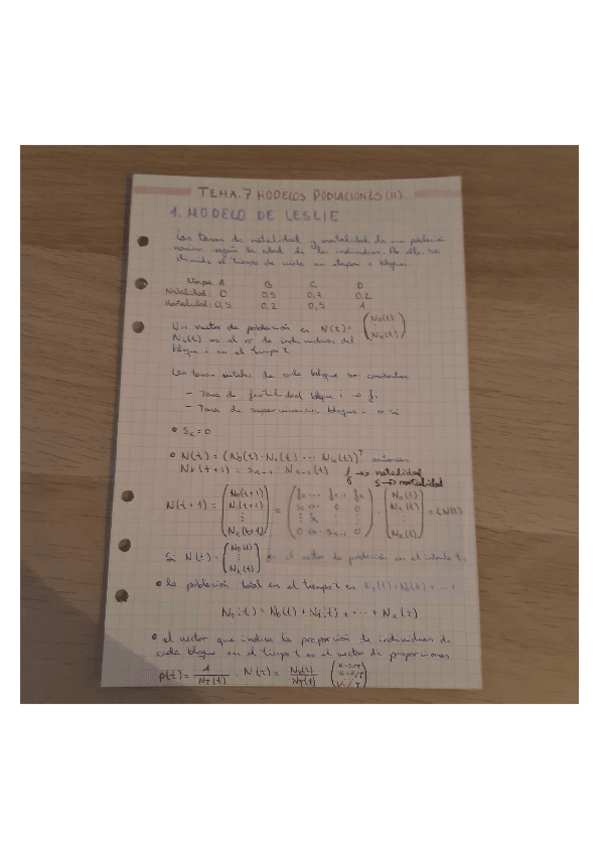 TEMA.7 MODELOS POBLACIONES (II)
1. MODELO DE LESLIE
Las tasas de natalidad y mortalidad de una población
varían según la edad de los individuos. Por ello, se
divide el tiempo de vida en etapas o bloques.
Etapa A B C D
Natalidad: 0 0,5 0,7 0,2
Mortalidad: 0,5 0,2 0,5 1
Un vector de población es N(t) = (N₀(t) ⋮ Nₖ(t))
Nᵢ(t) es el nº de individuos del
bloque i en el tiempo t
Las tasas vitales de cada bloque son constantes
- Tasa de fertilidad bloque i → fᵢ
- Tasa de supervivencia bloque i → sᵢ
• Sₖ = 0
• N(t) = (N₀(t) · N₁(t) ... Nₖ(t))ᵀ entonces
Nₖ(t+1) = sₖ₋₁ Nₖ₋₁(t) f → natalidad
s → mortalidad
N(t+1) = (N₀(t+1) N₁(t+1) ⋮ Nₖ(t+1)) =
Si N(t) = (N₀(t) ⋮ Nₖ(t)) es el vector de población en el instante t,
• la población total en el tiempo t es
N_T(t) = N₀(t) + N₁(t) + ... + Nₖ(t)
• el vector que indica la proporción de individuos de
cada bloque en el tiempo t es el vector de proporciones
p(t) = 1/N_T(t) · N(t) =